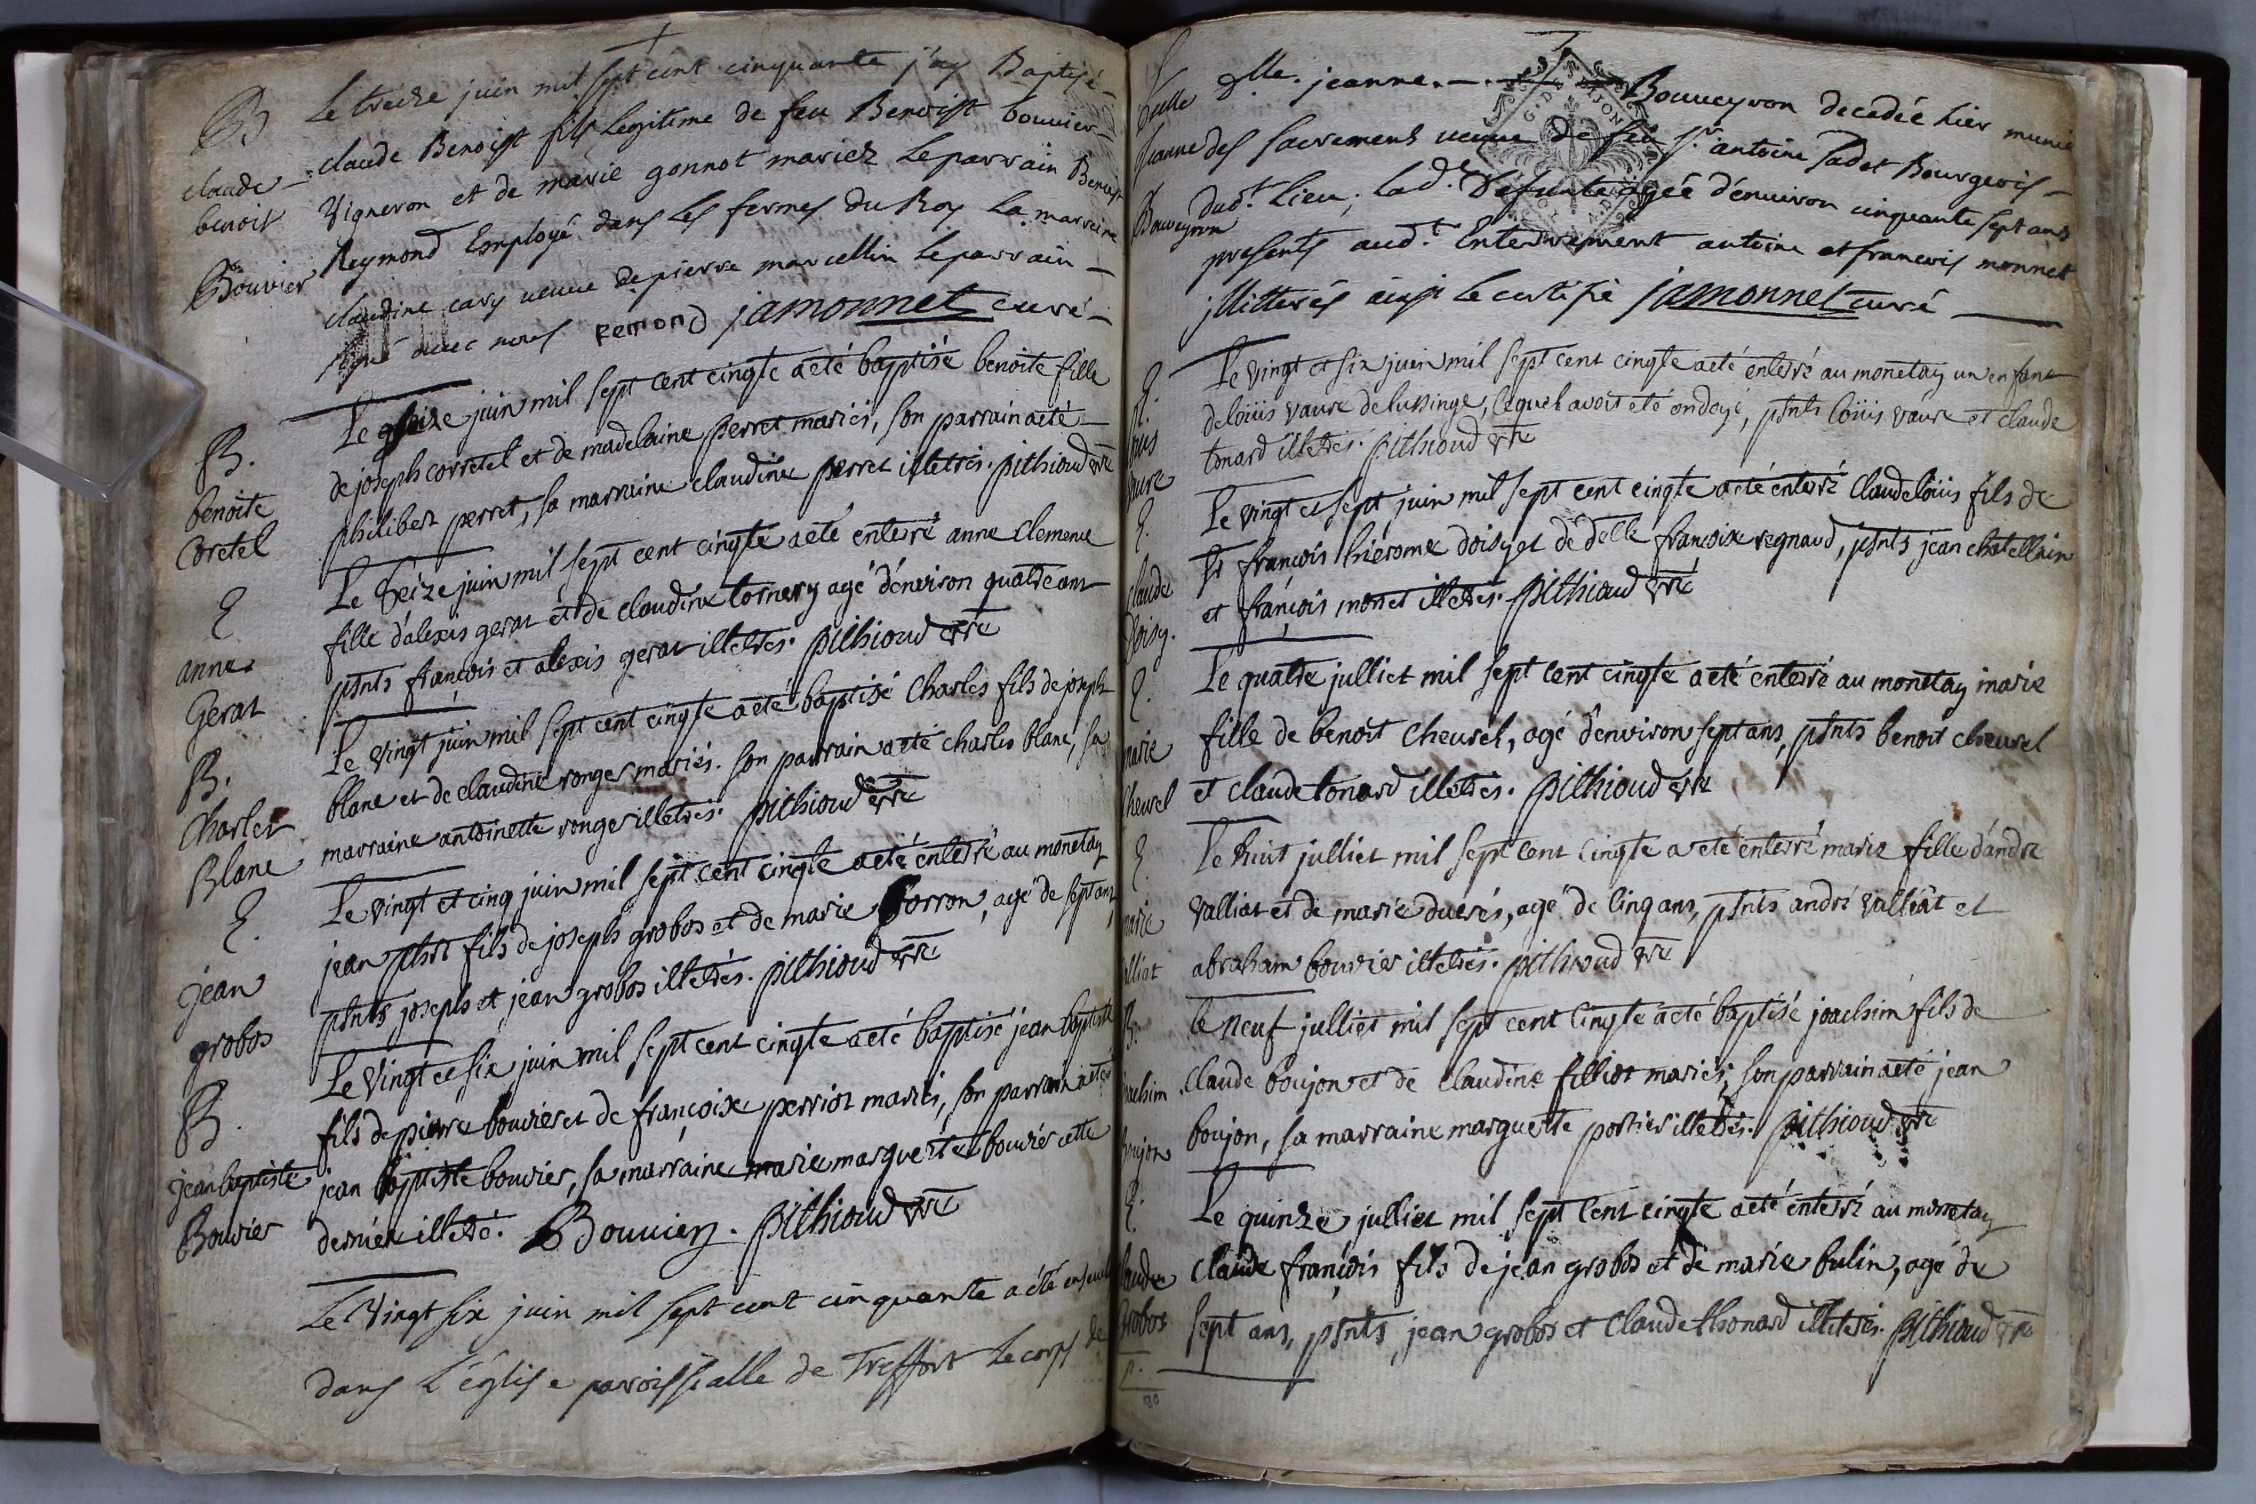 B Le treize juin mil sept cent cinquante j'ay Baptisé
claude Benoist fils legitime de feu Benoist bouvier
claude benoit Bouvier
Vigneron et de marie gonnot mariez Le parrain Benoist
Reymond Employé dans Les fermes du Roy La marreine
claudine cary veuve de pierre marcellin Le parrain
signé avec nous remond jamonnet curé
B. benoite Coretel
Le seize juin mil sept cent cinqte a eté baptisée benoite fille
de joseph corretel et de madelaine perret mariés, son parrain a eté
philibert perret, sa marraine claudine perret illetrés. pithioud vre
E anne Gerat
Le seize juin mil sept cent cinqte a eté enterré anne Clemence
fille d'alexis gerat et de claudine tornery agé d'environ quatre ans
pnts francois et alexis gerat illetrés. pithioud vre
B. Charles Blanc
Le vingt juin mil sept cent cinqte a eté baptisé Charles fils de joseph
blanc et de claudine ronger mariés. son parrain a eté charles blanc, sa
marraine antoinette ronger illetrés. pithioud vre
E. jean grobos
Le vingt et cinq juin mil sept cent cinqte a eté enterré au monetay
jean fils de joseph grobos et de marie agé de sept ans,
pnts joseph et jean grobos illetrés. pithioud vre
B. jean baptiste Bouvier
Le vingt et six juin mil sept cent cinqte a eté baptisé jean baptiste
fils de pierre bouvier et de françoise perriot mariés, son parrain a eté
jean baptiste bouvier, sa marraine marie marguerite bouvier cette
derniere illetré. Bouvier. pithioud vre
Le Vingt six juin mil sept cent cinquante a été
dans L'église paroissialle de Treffort Le corps de
Jeanne Bouveyron
dlle. jeanne Bouveyron decedée hier munie
des sacrements veuve de feu Sr. antoine Sadet Bourgeois
dud.t Lieu, Lad.e Defunte agée d'environ cinquante sept ans
presents aud.t Enterrement antoine et francois monnet
illitterés ainsi Le certifie jamonnet curé
E.
Le vingt et six juin mil sept cent cinqte a eté enterré au monetay un enfant
de loüis vaure de lussinge, lequel avoit eté ondoyé, pnts loüis vaure et claude
tonard illetrés. pithioud vre
E. claude doisy.
Le vingt et sept juin mil sept cent cinqte a eté enterré Claude loüis fils de
Sr françois hierome doisy et de delle francoise regnaud, pnts jean chatellain
et françois monet illetrés. pithioud vre
E. marie Cheurel
Le quatre julliet mil sept cent cinqte a eté enterré au monetay marie
fille de benoit Cheurel, agé d'environ sept ans, pnts benoit cheurel
et claude tonard illetrés. pithioud vre
E. marie alliat
Le huit julliet mil sept cent cinqte a eté enterré marie fille d'andre
valliat et de marie ducrés, agé de cinq ans, pnts andré valliat et
abraham bouvier illetrés. pithioud vre
B. joachim boujon
le neuf julliet mil sept cent cinqte a eté baptisé joachim fils de
claude boujon et de claudine filliot mariés, son parrain a eté jean
boujon, sa marraine marguerite portier illetrés. pithioud vre
E. claude Grobos
Le quinze julliet mil sept cent cinqte a eté enterré au monetay
claude françois fils de jean grobos et de marie bulin, agé de
sept ans, pnts jean grobos et Claude thonard illetrés. pithioud vre